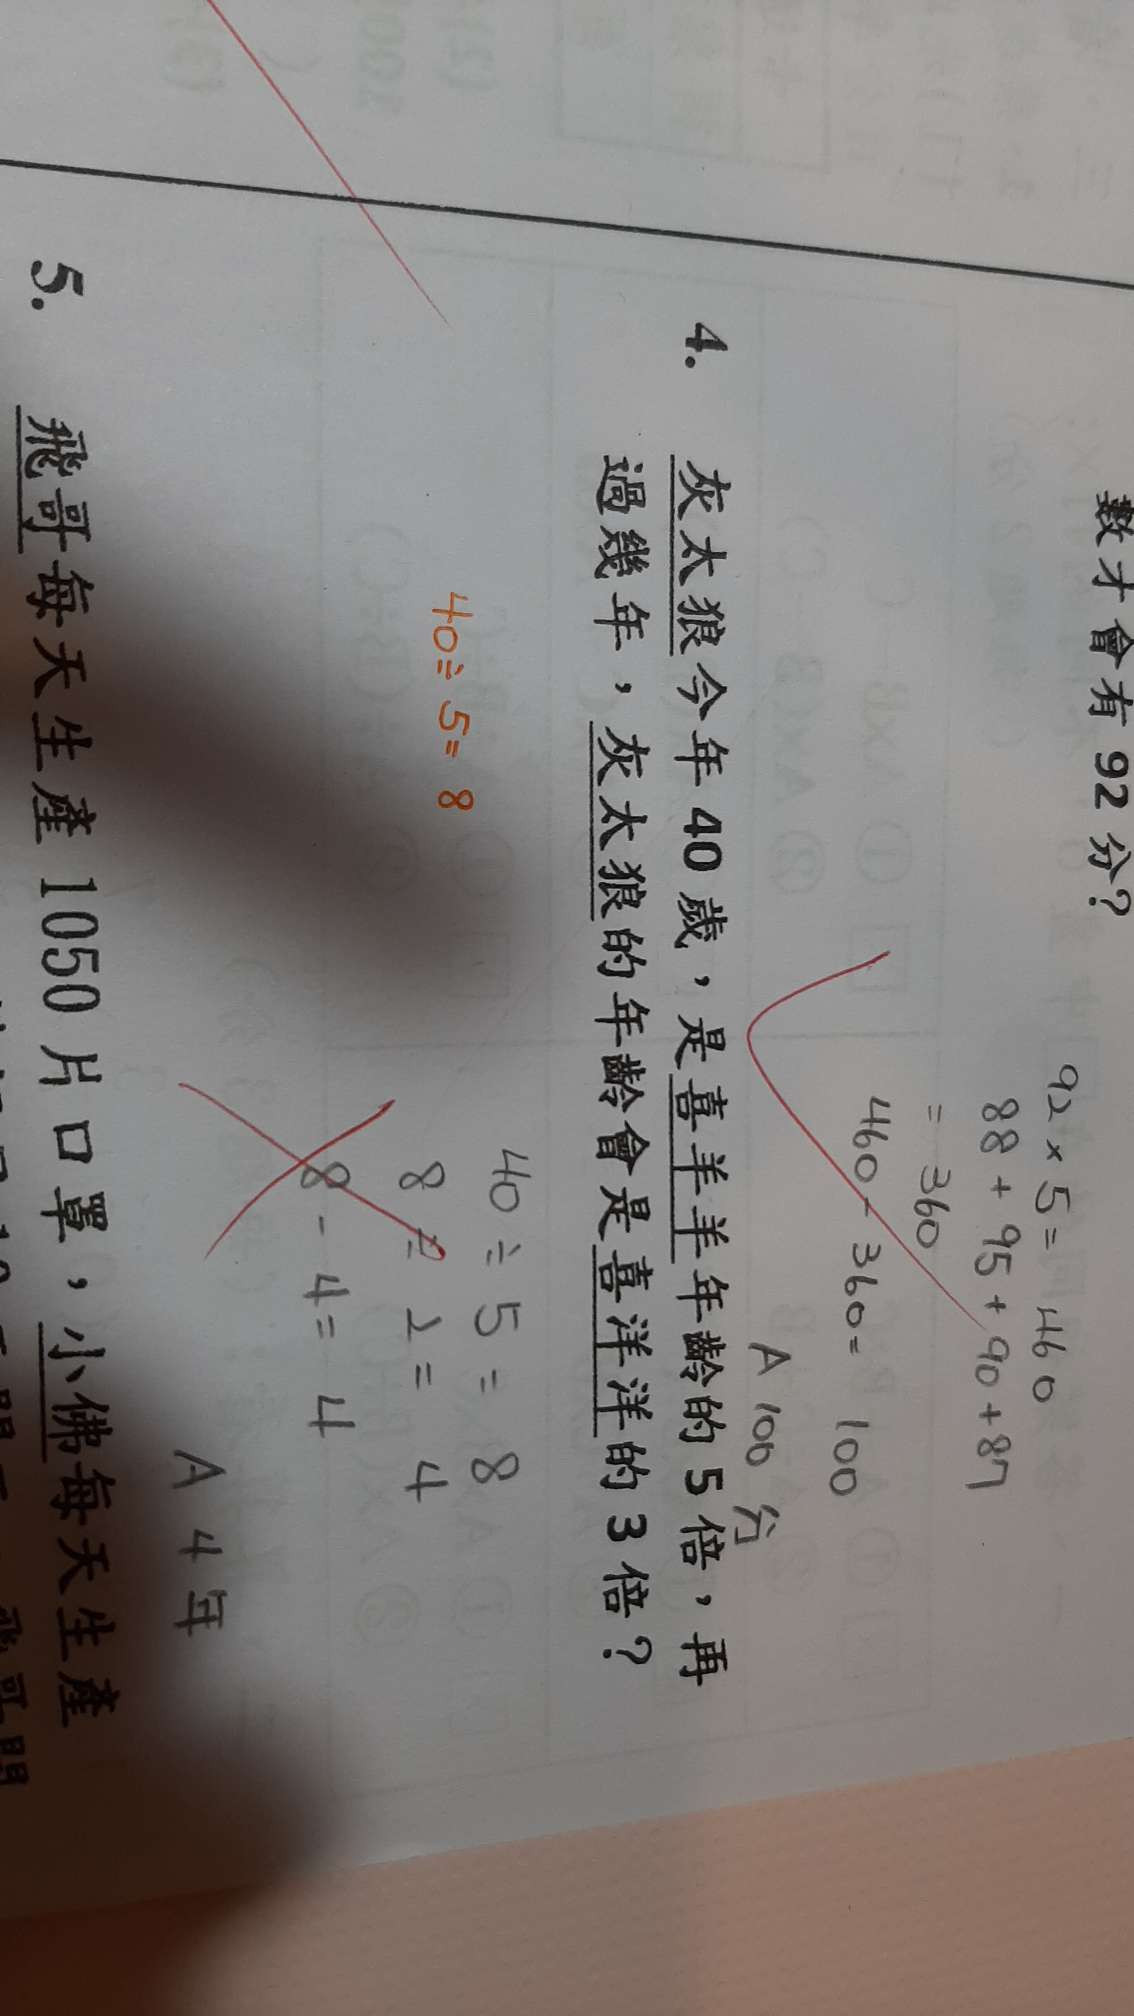 數才會有 92 分？
92 × 5 = 460
88 + 95 + 90 + 87
= 360
460 - 360 = 100
A 100 分
4. 灰太狼今年 40 歲，是喜羊羊年齡的 5 倍，再
過幾年，灰太狼的年齡會是喜洋洋的 3 倍？
40 ÷ 5 = 8
40 ÷ 5 = 8
8 ÷ 2 = 4
8 - 4 = 4
A 4 年
5. 飛哥每天生產 1050 片口罩，小佛每天生產